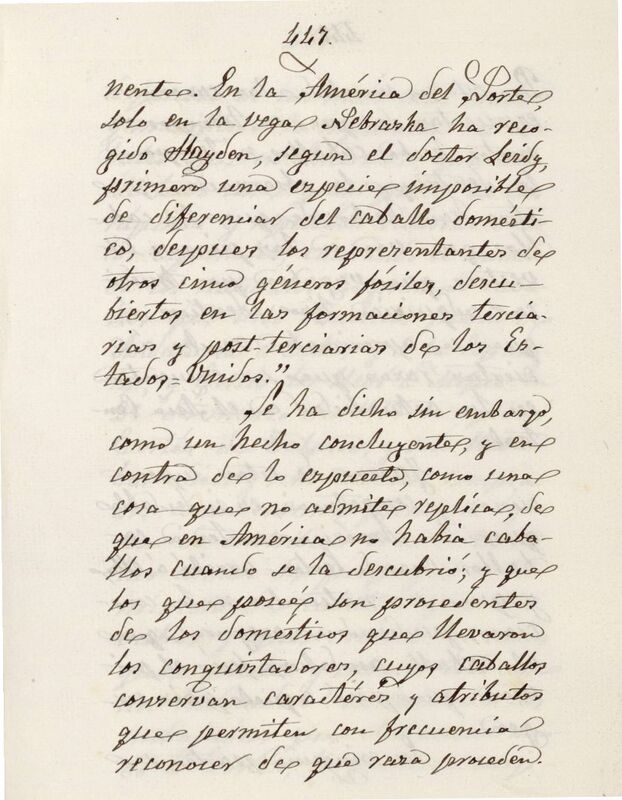 447.
nente. En la América del Norte,
solo en la vega Nebraska ha reco-
gido Hayden, segun el doctor Leidy,
primero una especie imposible
de diferenciar del caballo domésti-
co, despues los representantes de
otros cinco géneros fósiles, descu-
biertos en las formaciones tercia-
rias y post-terciarias de los Es-
tados=Unidos."
Se ha dicho sin embargo,
como un hecho concluyente, y en
contra de lo expuesto, como una
cosa que no admite replica, de
que en América no habia caba-
llos cuando se la descubrió; y que
los que poseé, son procedentes
de los domésticos que llevaron
los conquistadores, cuyos caballos
conservan caractéres y atributos
que permiten con frecuencia
reconocer de que raza proceden.